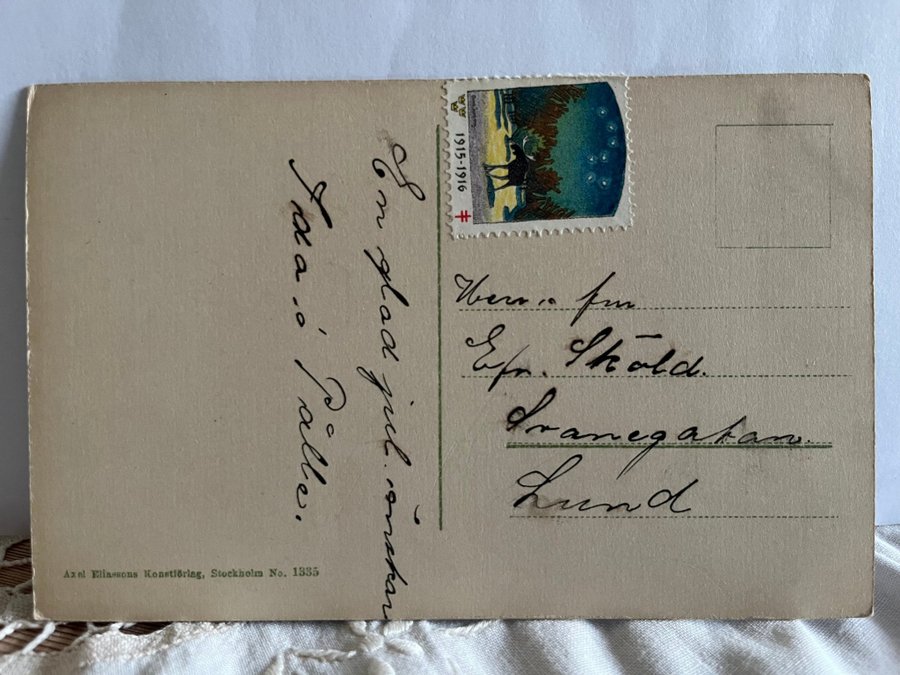 En glad jul. önskar
Ada o Pålle.
1915-1916
Herr o fru
Efr. Sköld.
Svanegatan.
Lund
Axel Eliassons Konstförlag, Stockholm No. 1335